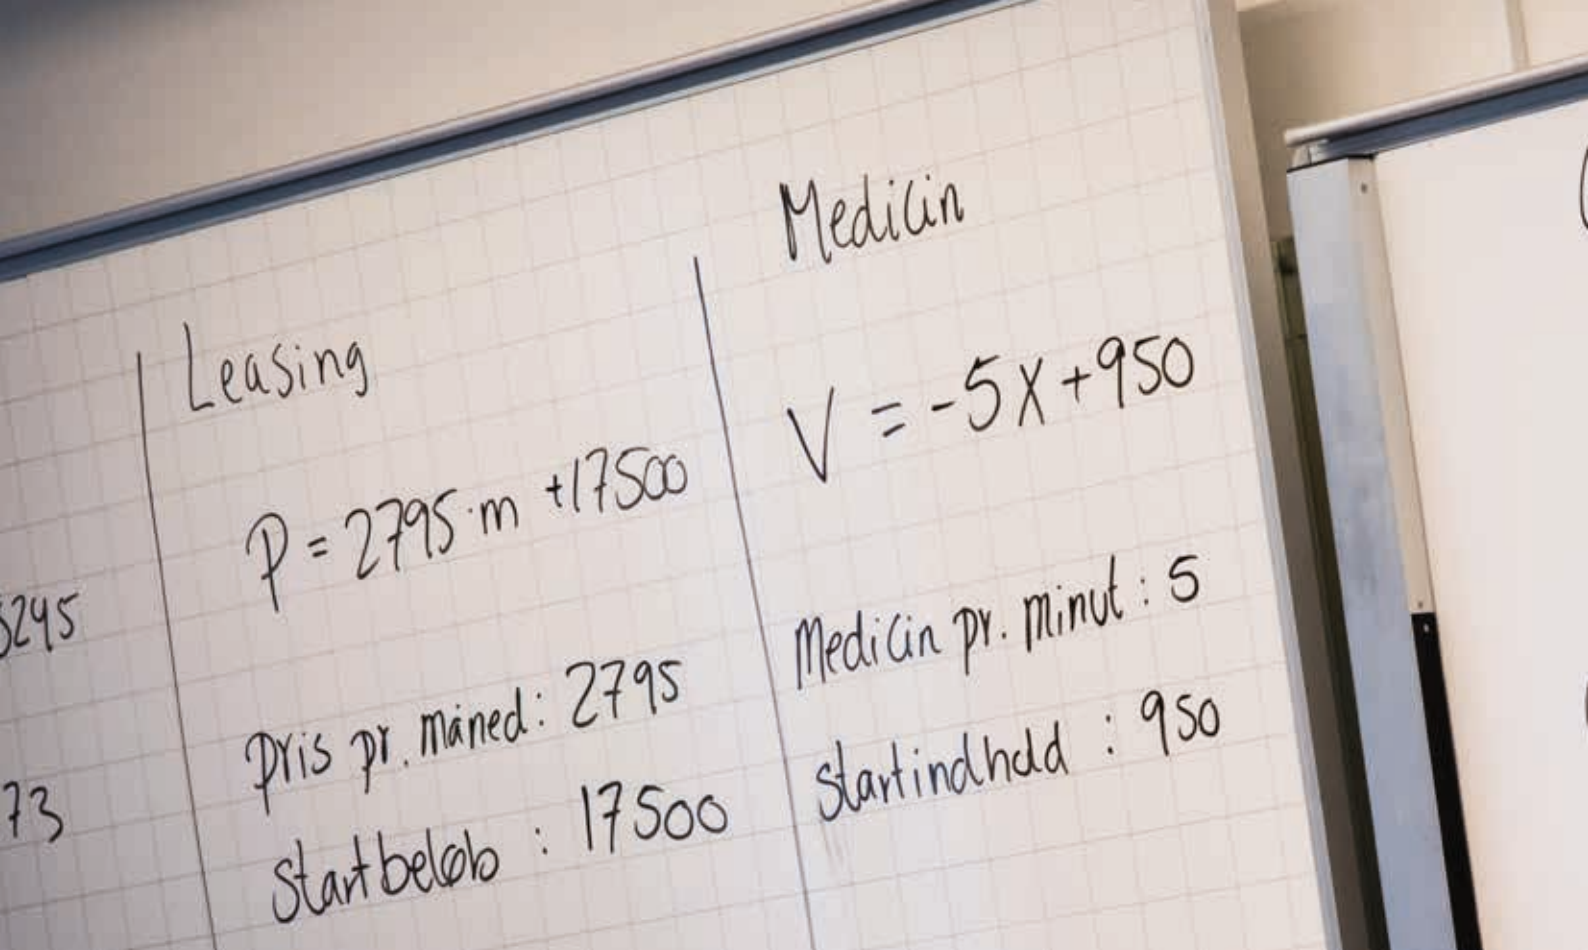 Leasing
P = 2795·m +17500
Pris pr. måned: 2795
Startbeløb : 17500
Medicin
V = -5x+950
Medicin pr. minut : 5
Startindhold : 950
245
73